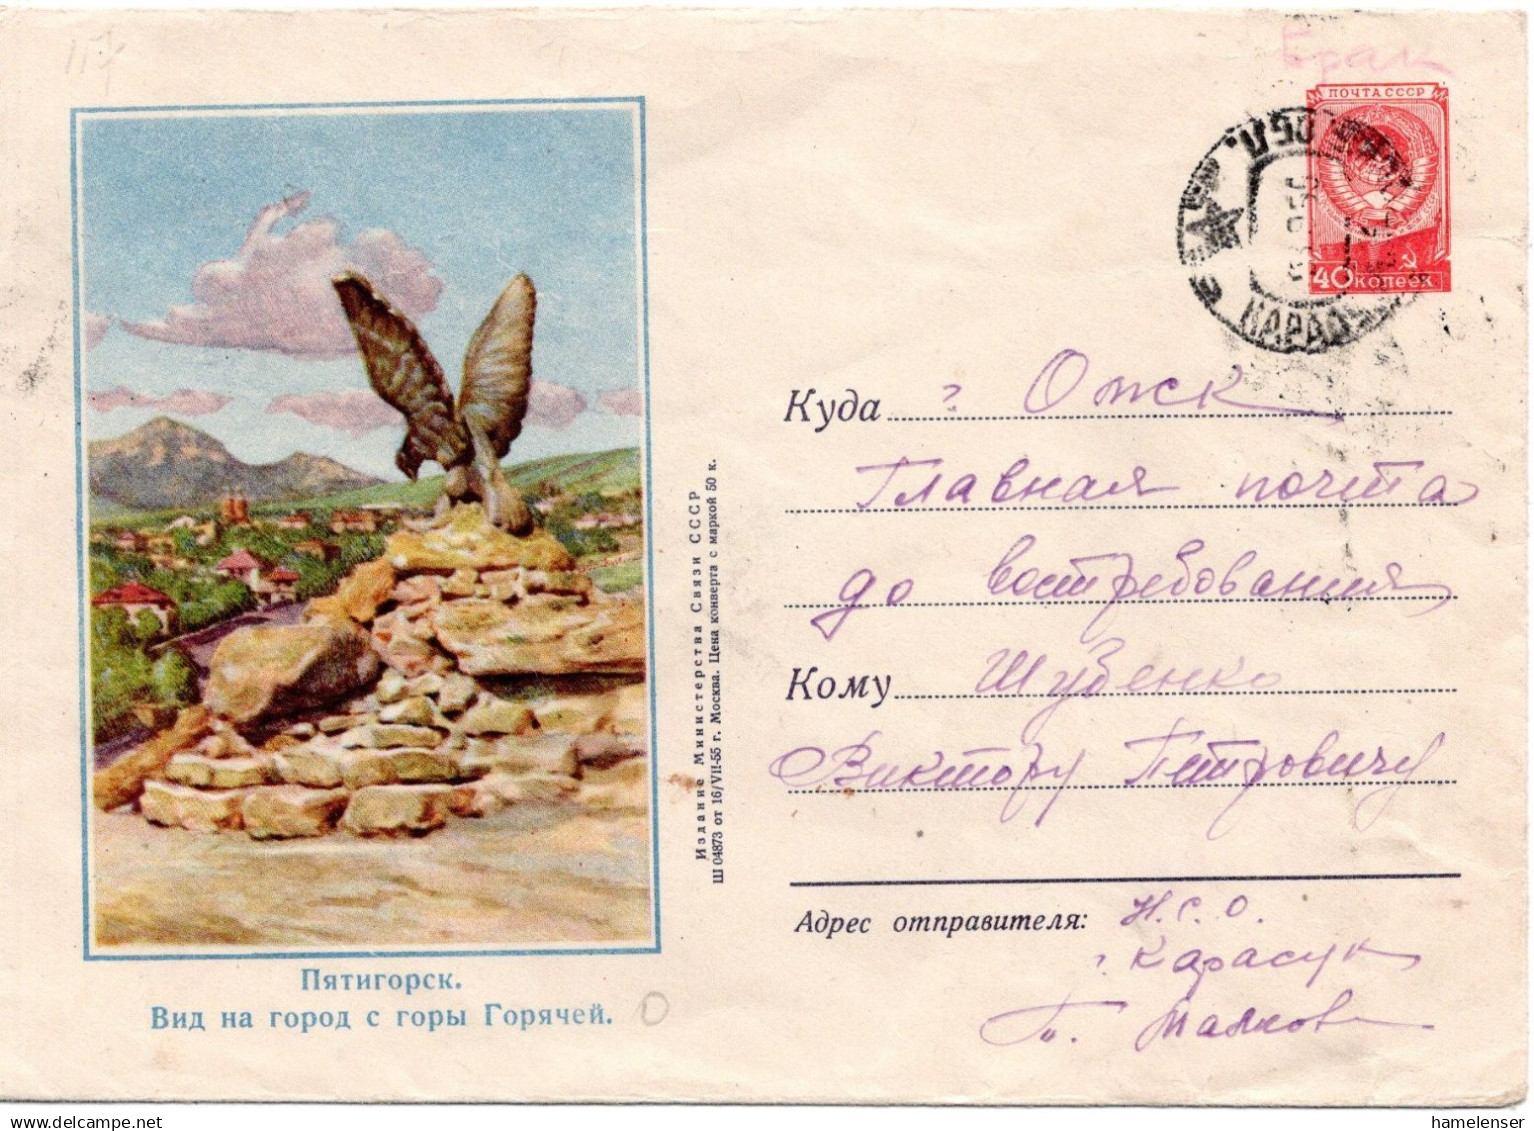 Брак
ПОЧТА СССР
40 копеек
Куда г. Омск
Главная почта
до востребования
Кому Шубенко
Виктору Петровичу
Адрес отправителя: Н.С.О.
г. Карасук
Издание Министерства Связи СССР
Ш 04873 от 16/VII-55 г. Москва. Цена конверта с маркой 50 к.
Пятигорск.
Вид на город с горы Горячей.
hamelenser